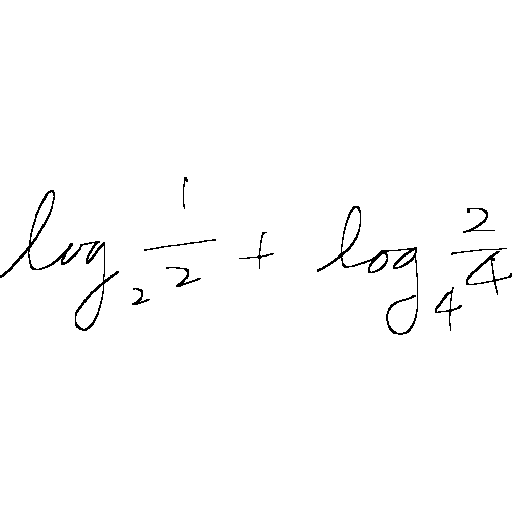 log_2 \frac{1}{2} + log_4 \frac{2}{4}